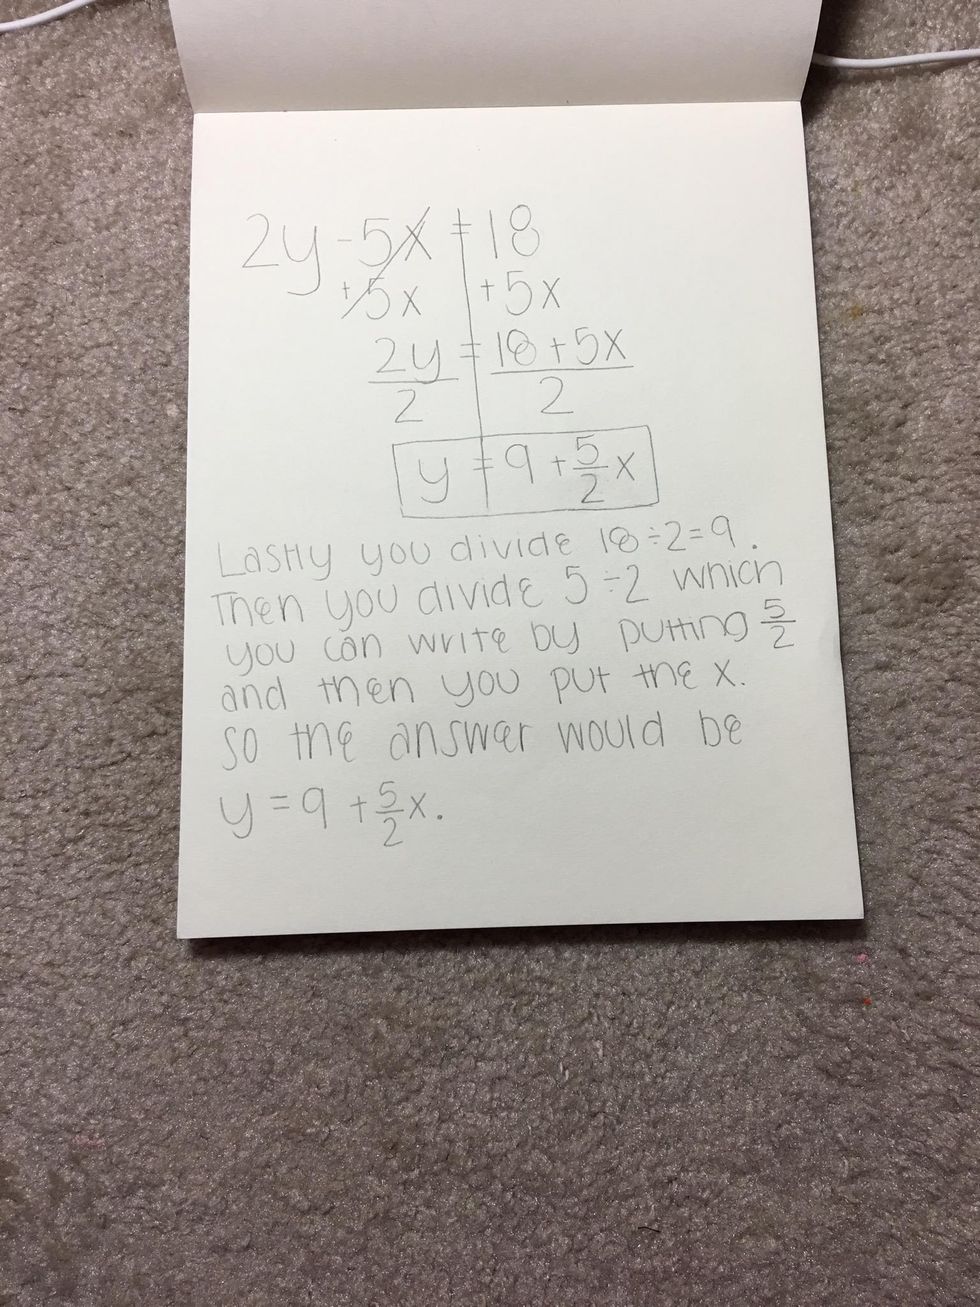 2y - 5x = 18
+5x +5x
2y = 18 + 5x
2 2
y = 9 + 5/2 x
Lastly you divide 18÷2=9.
Then you divide 5÷2 which
you can write by putting 5/2
and then you put the x.
so the answer would be
y = 9 + 5/2 x.